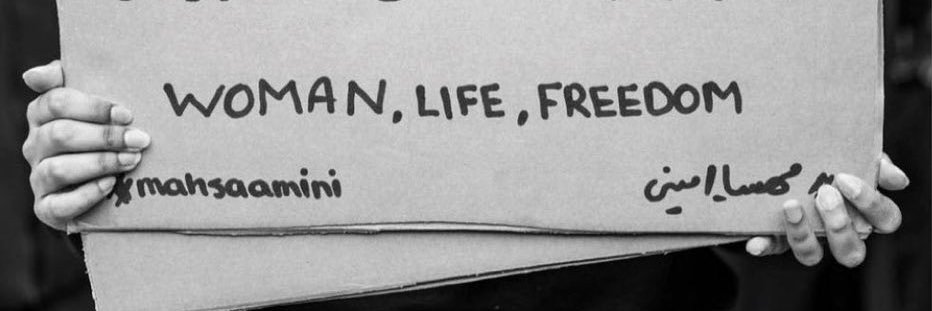 WOMAN, LIFE, FREEDOM
#mahsaamini مهسا_امینی